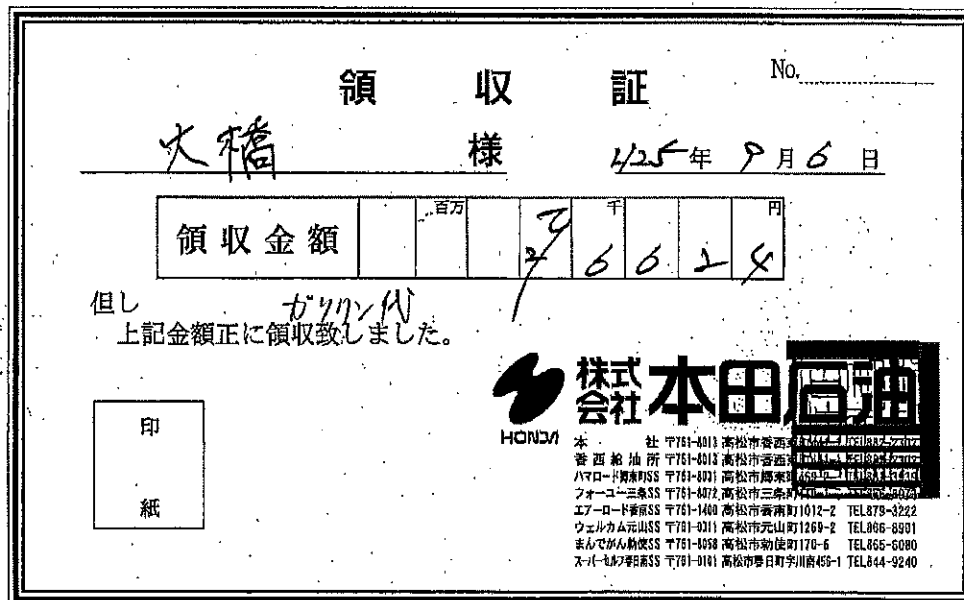 領収証
No.
大橋 様
H25年 9月6日
領収金額 百万 千 円 ¥26624
但し ガソリン代
上記金額正に領収致しました。
印
紙
HONDA
株式会社 本田石油
本社 〒761-8013 高松市香西
香西給油所 〒761-8013 高松市香西
ハマロード郷東町SS 〒761-8031 高松市郷東町
フォーユー三条SS 〒761-8072 高松市三条町
エアーロード香南SS 〒761-1400 高松市香南町1012-2 TEL879-3222
ウェルカム元山SS 〒761-0311 高松市元山町1269-2 TEL866-8901
まんでがん勅使SS 〒761-8058 高松市勅使町170-6 TEL865-6080
スーパーセルフ春日南SS 〒761-0101 高松市春日町字川南456-1 TEL844-9240